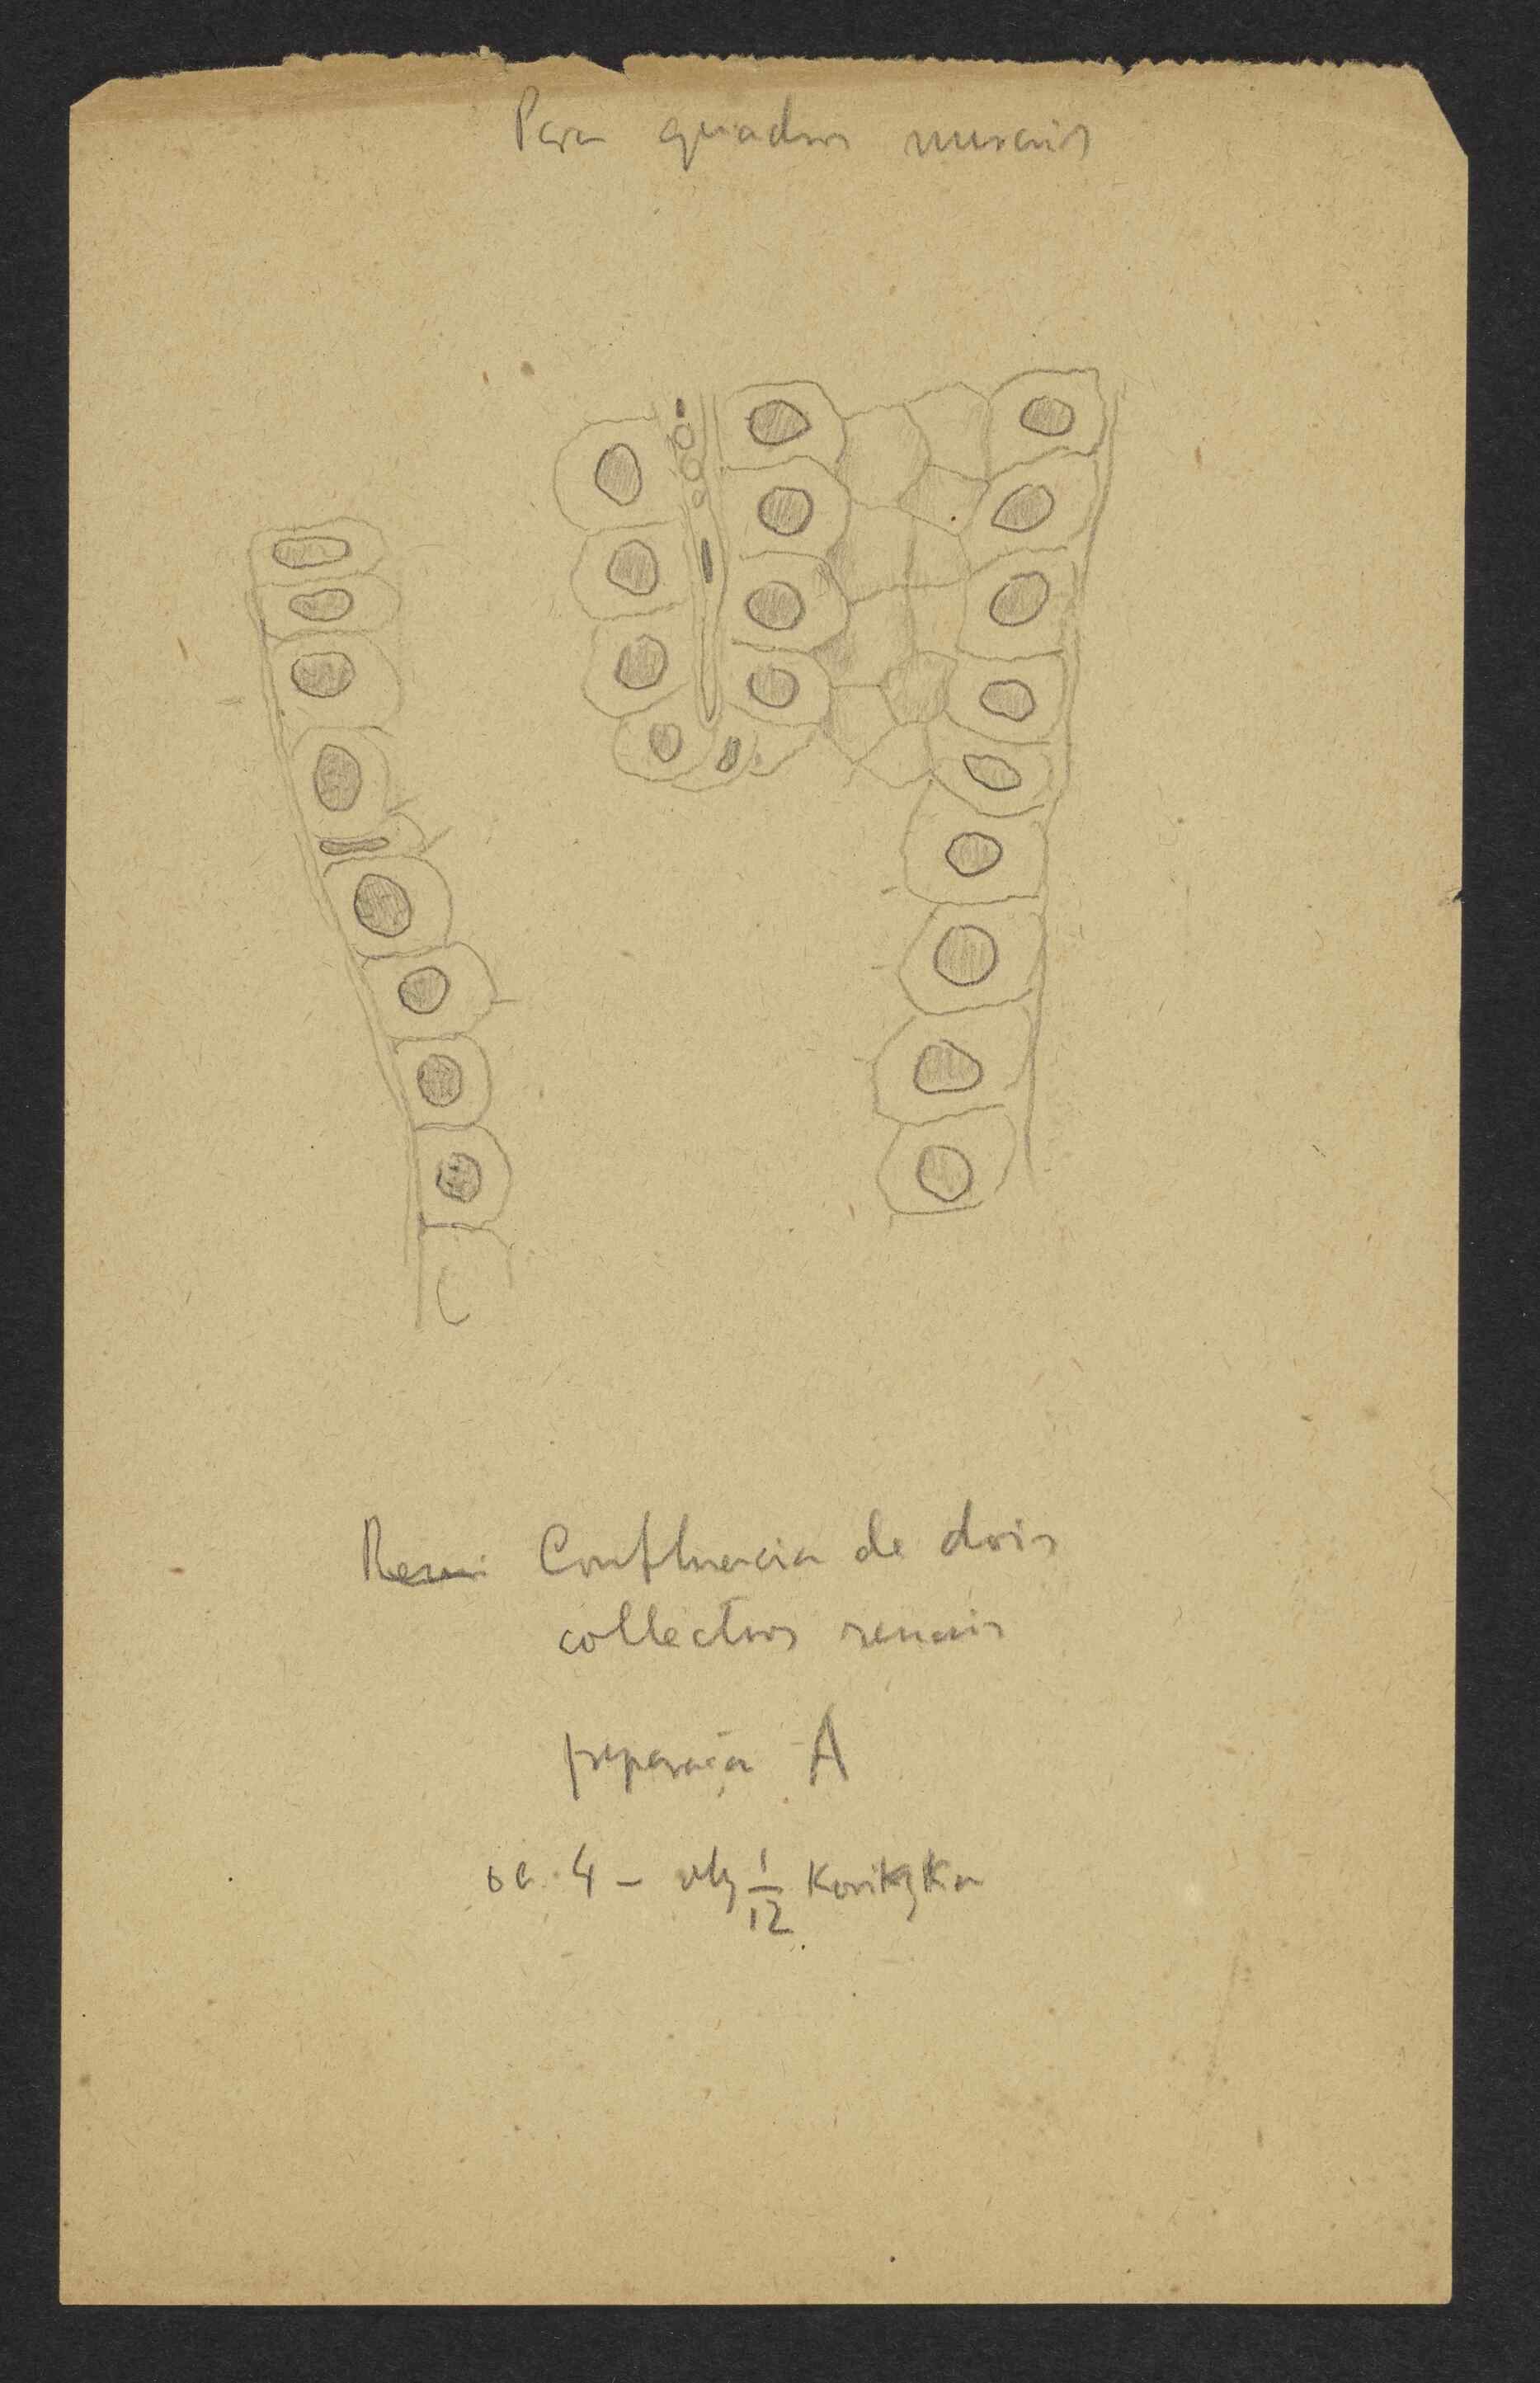 Para quadros murais
Confluencia de dois
collectores renais
preparação A
oc. 4 – obj 1/12 Koritzka